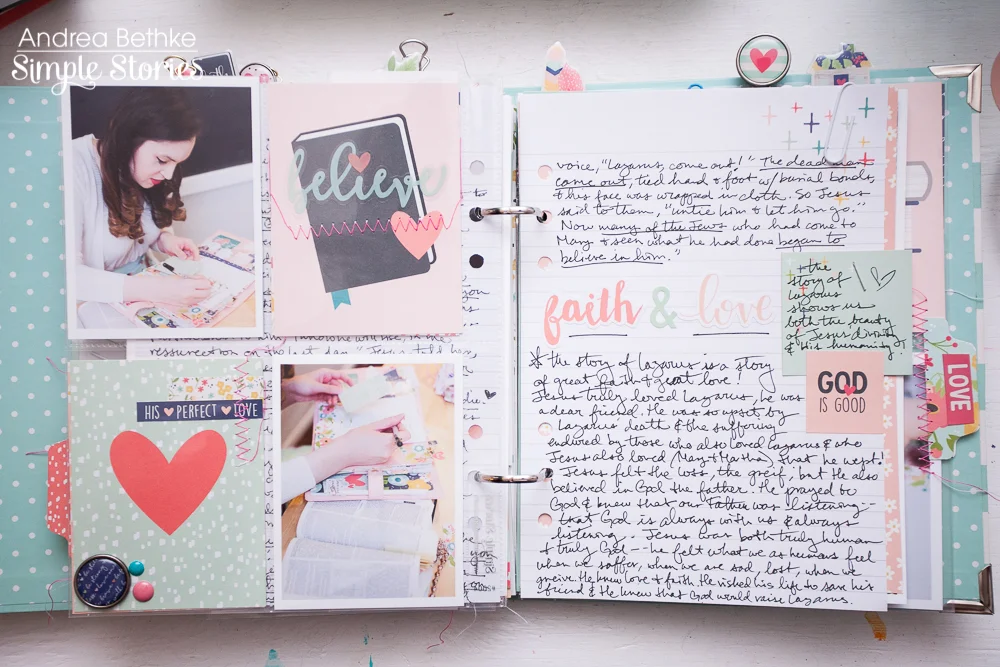 Andrea Bethke
Simple Stories
believe
ressurection on the last day." Jesus told her,
HIS PERFECT LOVE
voice, "Lazarus, come out!" The dead man
came out, tied hand & foot w/ burial bonds,
& his face was wrapped in cloth. So Jesus
said to them, "untie him & let him go."
Now many of the Jews who had come to
Mary & seen what he had done began to
believe in him."
faith & love
the story of lazarus is a story
of great faith & great love!
Jesus truly loved Lazarus, he was
a dear friend. He was so upset by
Lazarus death & the suffering
endured by those who also loved Lazarus & who
Jesus also loved (Mary & Martha) that he wept.
Jesus felt the loss, the greif, but He also
believed in God the father. He prayed to
God & knew that our Father was listening --
that God is always with us & always
listening. Jesus was both truly human
& truly God -- he felt what we as humans feel
when we suffer, when we are sad, lost, when we
greive. He knew love & faith. He risked his life to save his
friend & He knew that God would raise Lazarus.
the
story of
lazarus
shows us
both the beauty
of Jesus divinity
& His humanity.
GOD
IS GOOD
LOVE